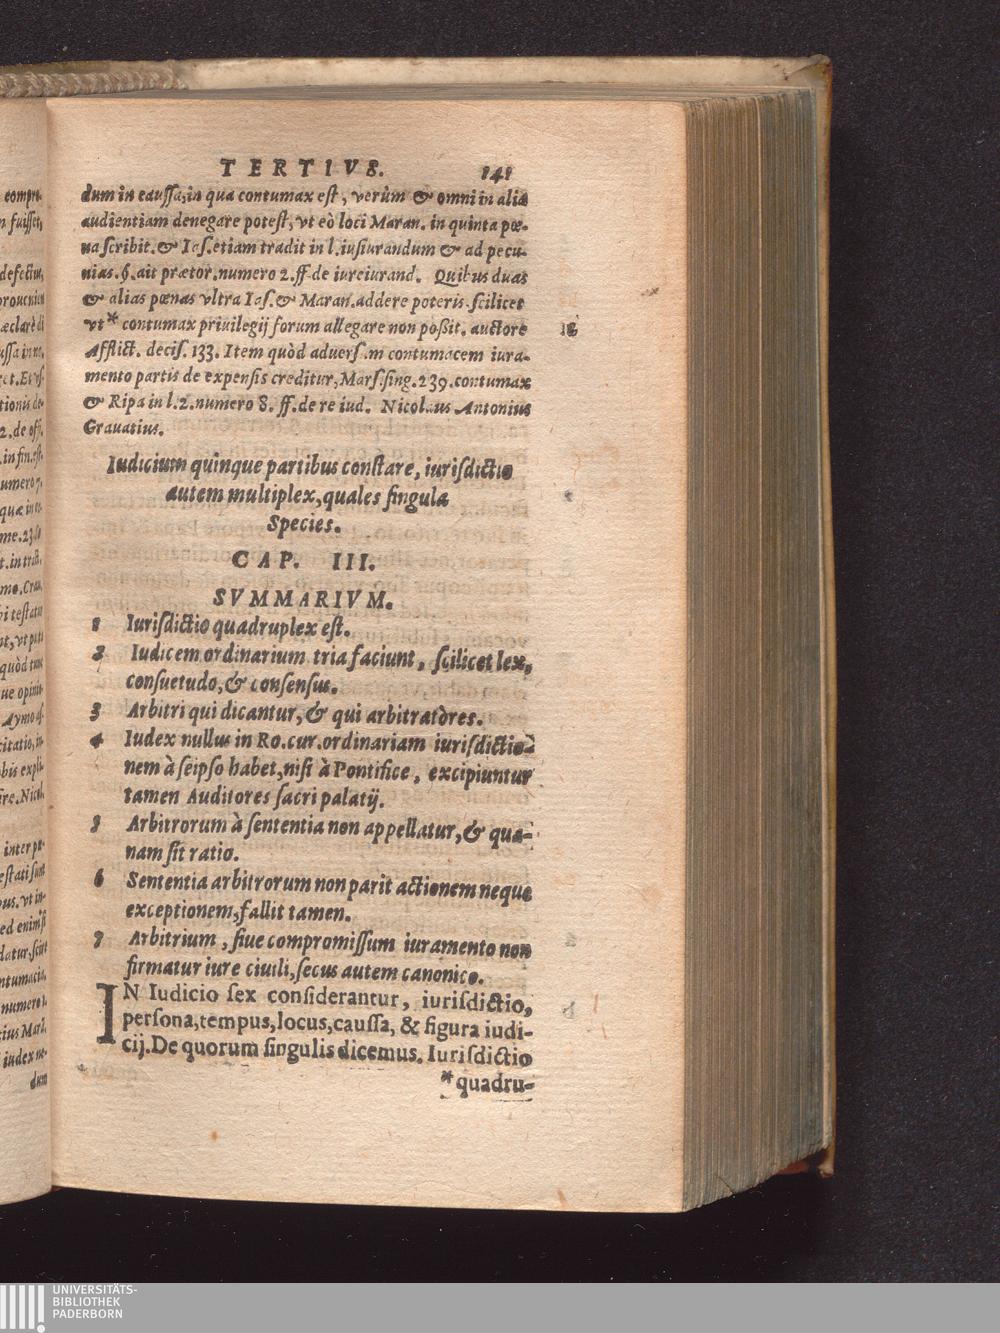 TERTIVS. 141
dum in caussa, in qua contumax est, verùm & omni in alia
audientiam denegare potest, vt eò loci Maran. in quinta pœ-
na scribit. & Ias. etiam tradit in l. iusiurandum & ad pecu-
nias. §. ait prætor. numero 2. ff. de iureiurand. Quibus duas
& alias pœnas vltra Ias. & Maran. addere poteris. scilicet
vt * contumax priuilegij forum allegare non poßit. auctore
Afflict. decis. 133. Item quòd aduers.m contumacem iura-
mento partis de expensis creditur, Mars. sing. 239. contumax
& Ripa in l. 2. numero 8. ff. de re iud. Nicolaus Antonius
Grauatius.
Iudicium quinque partibus constare, iurisdictio
autem multiplex, quales singula
Species.
CAP. III.
SVMMARIVM.
1 Iurisdictio quadruplex est.
2 Iudicem ordinarium tria faciunt, scilicet lex,
consuetudo, & consensus.
3 Arbitri qui dicantur, & qui arbitratòres.
4 Iudex nullus in Ro. cur. ordinariam iurisdictio-
nem à seipso habet, nisi à Pontifice, excipiuntur
tamen Auditores sacri palatij.
5 Arbitrorum à sententia non appellatur, & quæ-
nam sit ratio.
6 Sententia arbitrorum non parit actionem neque
exceptionem, fallit tamen.
7 Arbitrium, siue compromissum iuramento non
firmatur iure ciuili, secus autem canonico.
IN Iudicio sex considerantur, iurisdictio,
persona, tempus, locus, caussa, & figura iudi-
cij. De quorum singulis dicemus. Iurisdictio
* quadru-
UNIVERSITÄTS-
BIBLIOTHEK
PADERBORN